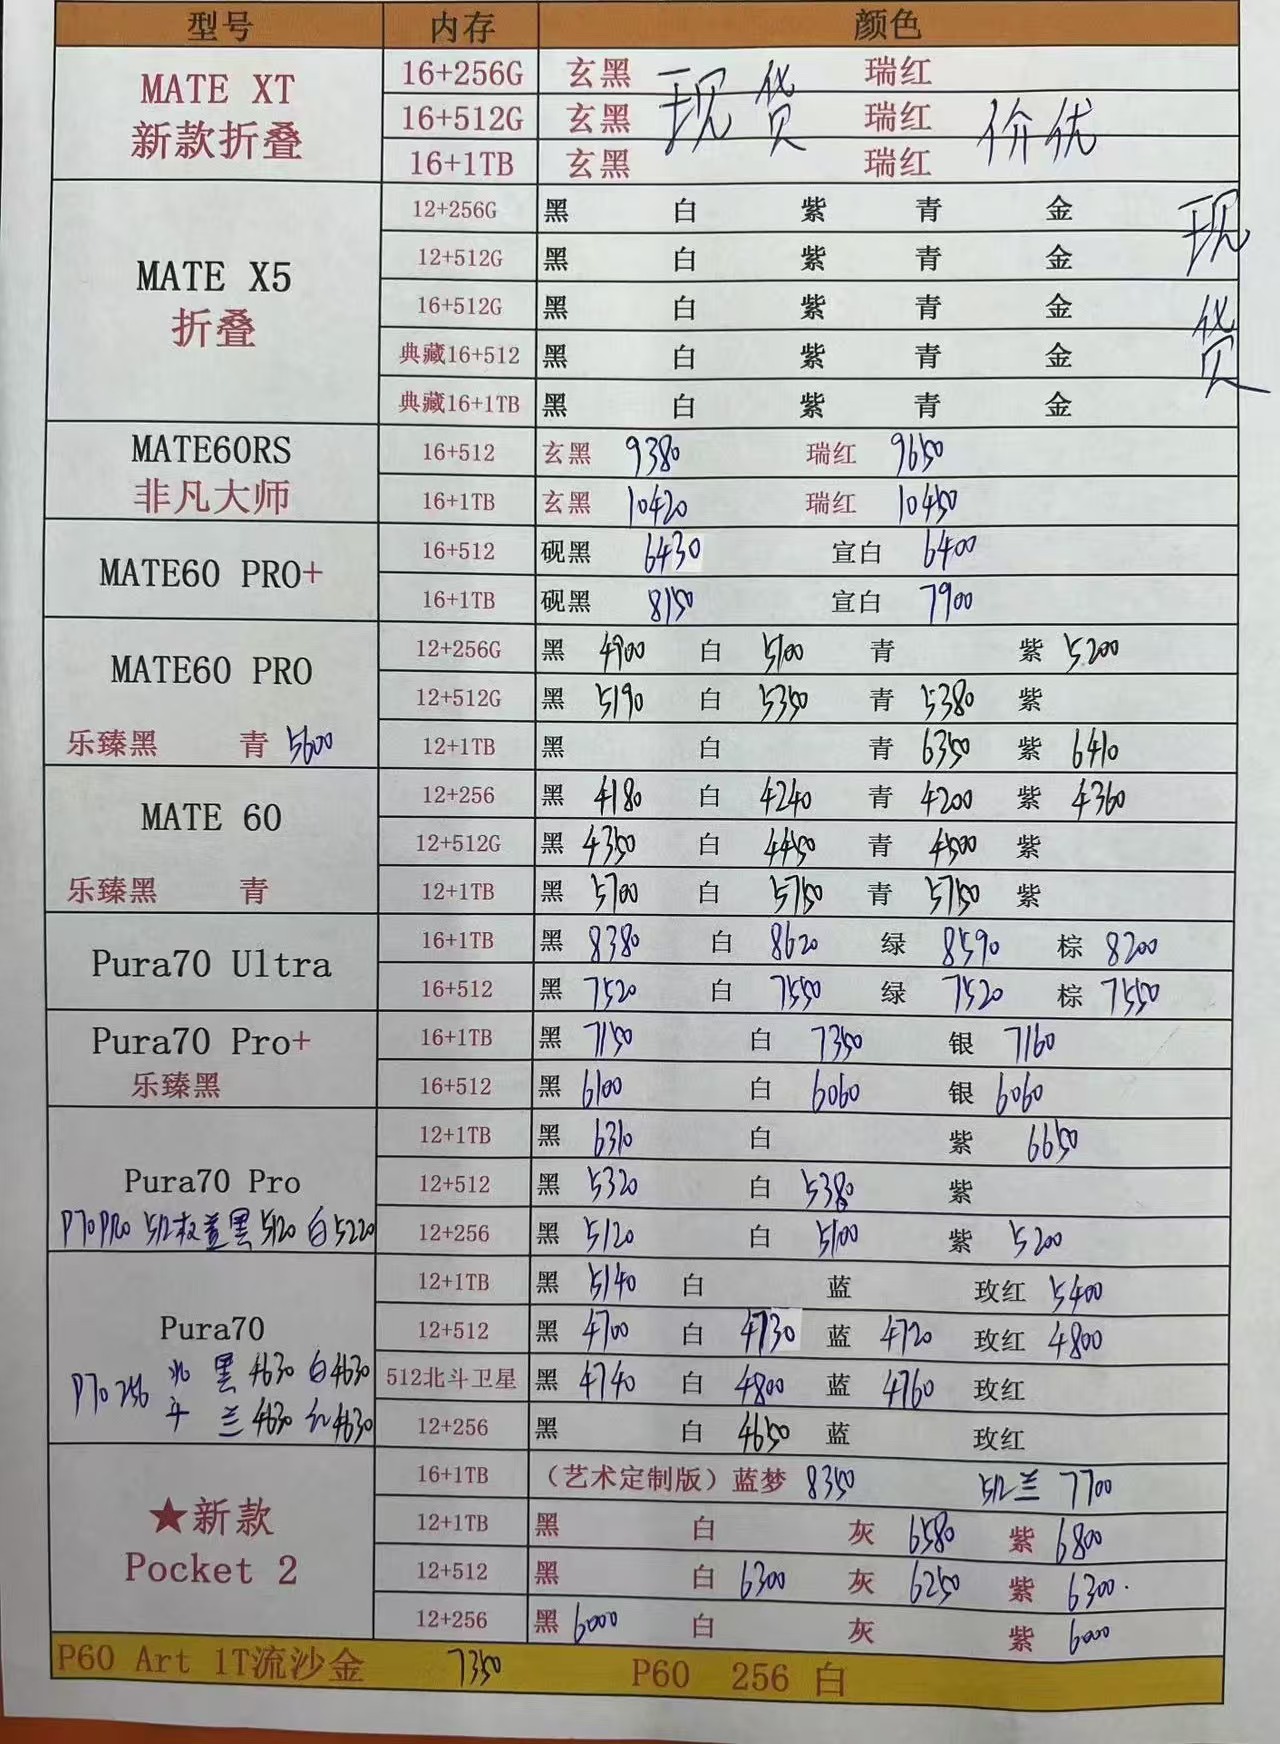 型号 内存 颜色
MATE XT 新款折叠 16+256G 玄黑 瑞红
16+512G 玄黑 现货 瑞红 价优
16+1TB 玄黑 瑞红
MATE X5 折叠 12+256G 黑 白 紫 青 金 现货
12+512G 黑 白 紫 青 金
16+512G 黑 白 紫 青 金
典藏16+512 黑 白 紫 青 金
典藏16+1TB 黑 白 紫 青 金
MATE60RS 16+512 玄黑 9380 瑞红 9650
非凡大师 16+1TB 玄黑 10420 瑞红 10450
MATE60 PRO+ 16+512 砚黑 6430 宣白 6400
16+1TB 砚黑 8150 宣白 7900
MATE60 PRO 12+256G 黑 4900 白 5100 青 紫 5200
12+512G 黑 5190 白 5350 青 5380 紫
乐臻黑 青 5600 12+1TB 黑 白 青 6350 紫 6410
MATE 60 12+256 黑 4180 白 4240 青 4200 紫 4360
12+512G 黑 4350 白 4450 青 4500 紫
乐臻黑 青 12+1TB 黑 5700 白 5750 青 5750 紫
Pura70 Ultra 16+1TB 黑 8380 白 8620 绿 8590 棕 8200
16+512 黑 7520 白 7550 绿 7520 棕 7550
Pura70 Pro+ 16+1TB 黑 7150 白 7350 银 7160
乐臻黑 16+512 黑 6100 白 6060 银 6060
12+1TB 黑 6310 白 紫 6650
Pura70 Pro 12+512 黑 5320 白 5380 紫
P70PRO 512 盖黑5120 白5220 12+256 黑 5120 白 5100 紫 5200
12+1TB 黑 5140 白 蓝 玫红 5400
Pura70 12+512 黑 4700 白 4730 蓝 4720 玫红 4800
P70 256 北斗 黑4630 白4630 512北斗卫星 黑 4740 白 4800 蓝 4760 玫红
兰4630 红4630 12+256 黑 白 4650 蓝 玫红
16+1TB （艺术定制版）蓝梦 8350 512兰 7700
★新款 12+1TB 黑 白 灰 6580 紫 6800
Pocket 2 12+512 黑 白 6300 灰 6250 紫 6300.
12+256 黑 6000 白 灰 紫 6000
P60 Art 1T流沙金 7350 P60 256 白